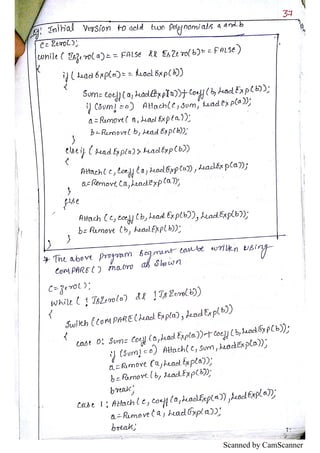 37
Eg: Initial Version to add two polynomials a and b
C = Zero();
while ( IsZero(a) == FALSE && IsZero(b) == FALSE)
{
if ( Lead Exp(a) == Lead Exp(b))
{
Sum = Coeff (a, Lead Exp(a)) + Coeff (b, Lead Exp(b));
if (Sum != 0) Attach (c, Sum, Lead Exp(a));
a = Remove( a, Lead Exp(a));
b = Remove( b, Lead Exp(b));
}
else if ( Lead Exp(a) > Lead Exp(b))
{
Attach( c, Coeff (a, Lead Exp(a)), Lead Exp(a));
a = Remove (a, Lead Exp(a));
}
else
{
Attach ( c, Coeff (b, Lead Exp(b)), Lead Exp(b));
b = Remove (b, Lead Exp(b));
}
}
* The above program Segment can be written using
COMPARE( ) macro as Shown
C = zero( );
While ( ! IsZero(a) && ! IsZero(b))
{
Switch ( COMPARE (Lead Exp(a), Lead Exp(b))
{
case 0: Sum = Coeff (a, Lead Exp(a)) + Coeff (b, Lead Exp(b));
if (Sum != 0) Attach( c, Sum, Lead Exp(a));
a = Remove (a, Lead Exp(a));
b = Remove (b, Lead Exp(b));
break;
Case 1: Attach( c, Coeff (a, Lead Exp(a)), Lead Exp(a));
a = Remove ( a, Lead Exp(a));
break;
Scanned by CamScanner